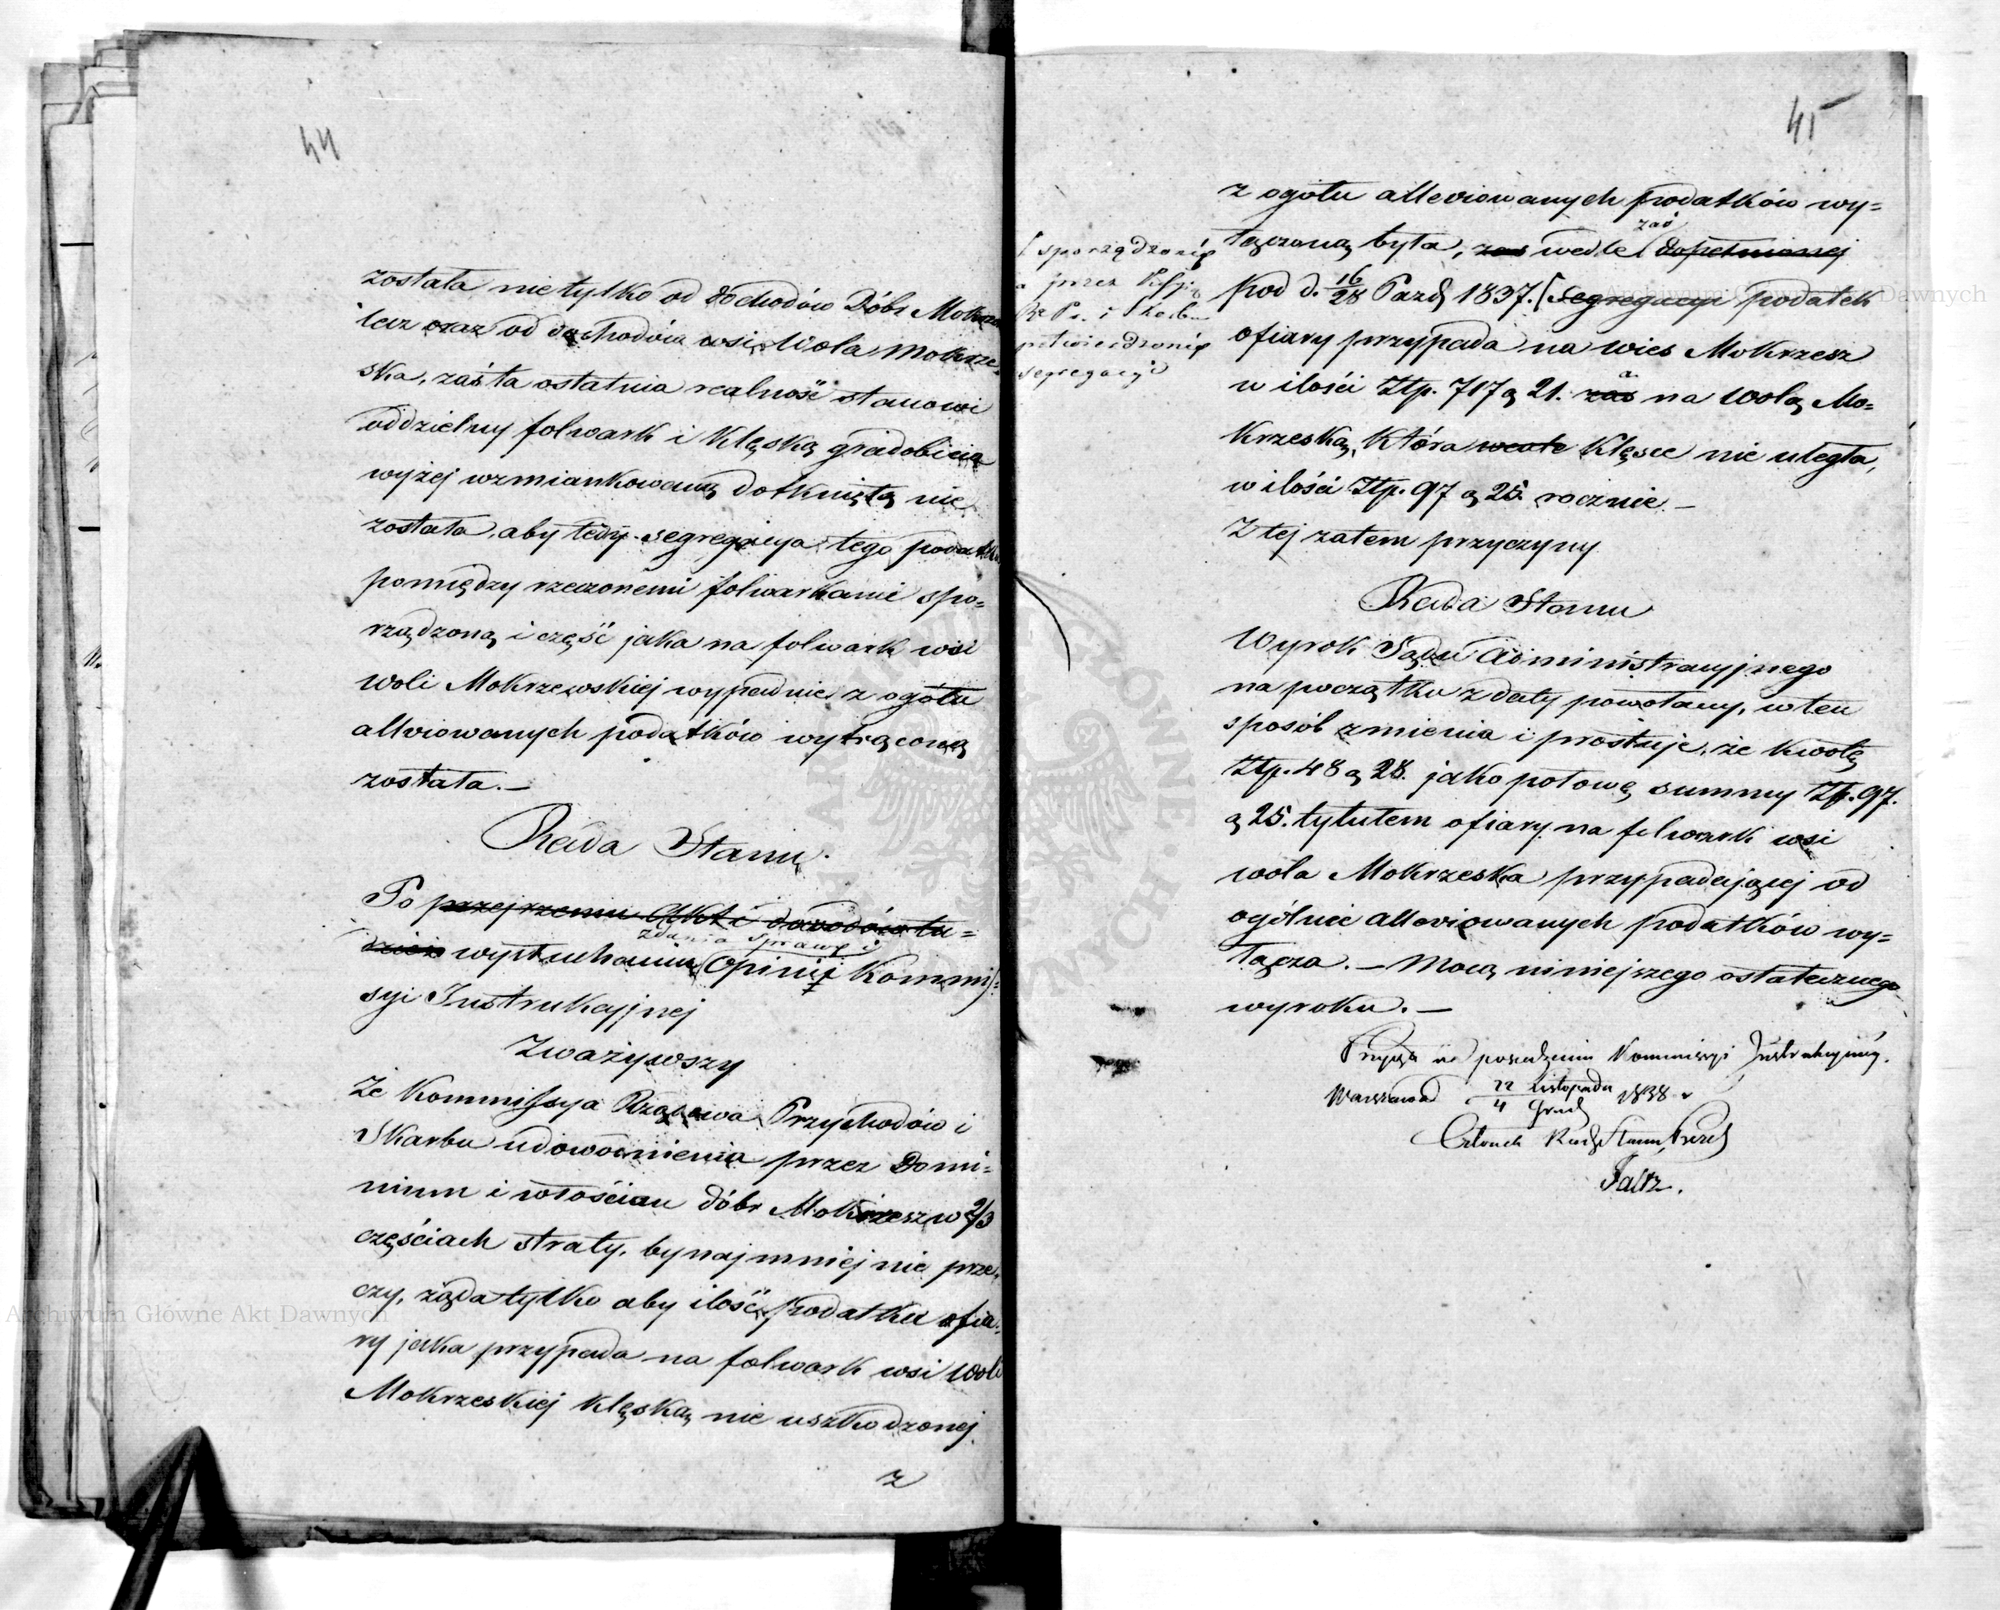 44
została nie tylko od dochodów Dóbr Mokrzesz
lecz oraz od dochodów wsi Wola Mokrze-
ska, zaś ta ostatnia realność stanowi
oddzielny folwark i klęską gradobicia
wyżej wzmiankowaną dotkniętą nie
została, aby tedy segregacya tego podatku
pomiędzy rzeczonemi folwarkami spo=
rządzoną i część jaka na folwark wsi
woli Mokrzewskiej wypadnie z ogółu
alleviowanych podatków wytrąconą
została.—
Rada Stanu.
Po przejrzeniu Akt i dowodów tu=
dzież wysłuchaniu zdania sprawy i Opinii Kommis=
syi Instrukcyjnej
Zważywszy
Że Kommissya Rządowa Przychodów i
Skarbu udowodnienia przez Domi=
nium i włościan dóbr Mokrzesz w 2/3
częściach straty, bynajmniej nie prze=
czy, żąda tylko aby ilość podatku ofia=
ry jaka przypada na folwark wsi Woli
Mokrzeskiej klęską nie uszkodzonej
z
45
z ogółu alleviowanych podatków wy=
łączoną była, zas wedle zaś dopełnionej
pod d. 16/28 Paźdź 1837. [ Segregacyi podatek
[ sporządzonéj
a przez
i Skarbu
potwierdzonéj
segregacyi
ofiary przypada na wieś Mokrzesz
w ilości Złp. 717 g 21. zaś a na Wolą Mo=
krzeską, która wcale klęsce nie uległa,
w ilości Złp. 97 g 25. rocznie —
Z tej zatem przyczyny
Rada Stanu
Wyrok Sądu Administracyjnego
na początku z daty powołany, w ten
sposób zmienia i prostuje, że kwotę
Złp. 48 g 28. jako połowę summy Złp. 97.
g 25. tytułem ofiary na folwark wsi
wola Mokrzeska przypadającej od
ogólnie alleviowanych podatków wy=
łącza. — Mocą niniejszego ostatecznego
wyroku. —
Przyjęto na posiedzeniu Kommissyi Instrukcyjnéj.
Warszawa d 22 Listopada / 4 Grud 1838 r
Członek Rady Stanu, Prezd
Faltz.
Archiwum Główne Akt Dawnych
Archiwum Główne Akt Dawnych